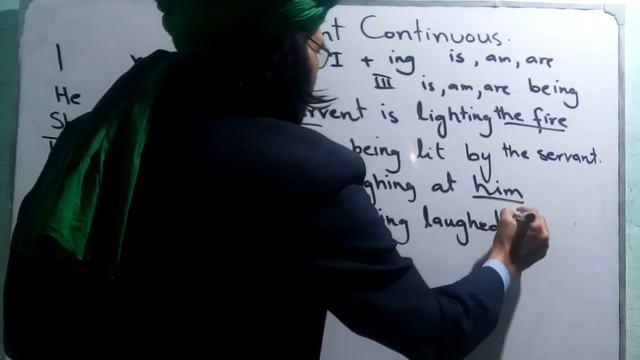 nt Continuous.
I I + ing is, am, are
He III is, am, are being
rvent is lighting the fire
being lit by the servant.
ghing at him
ing laughed